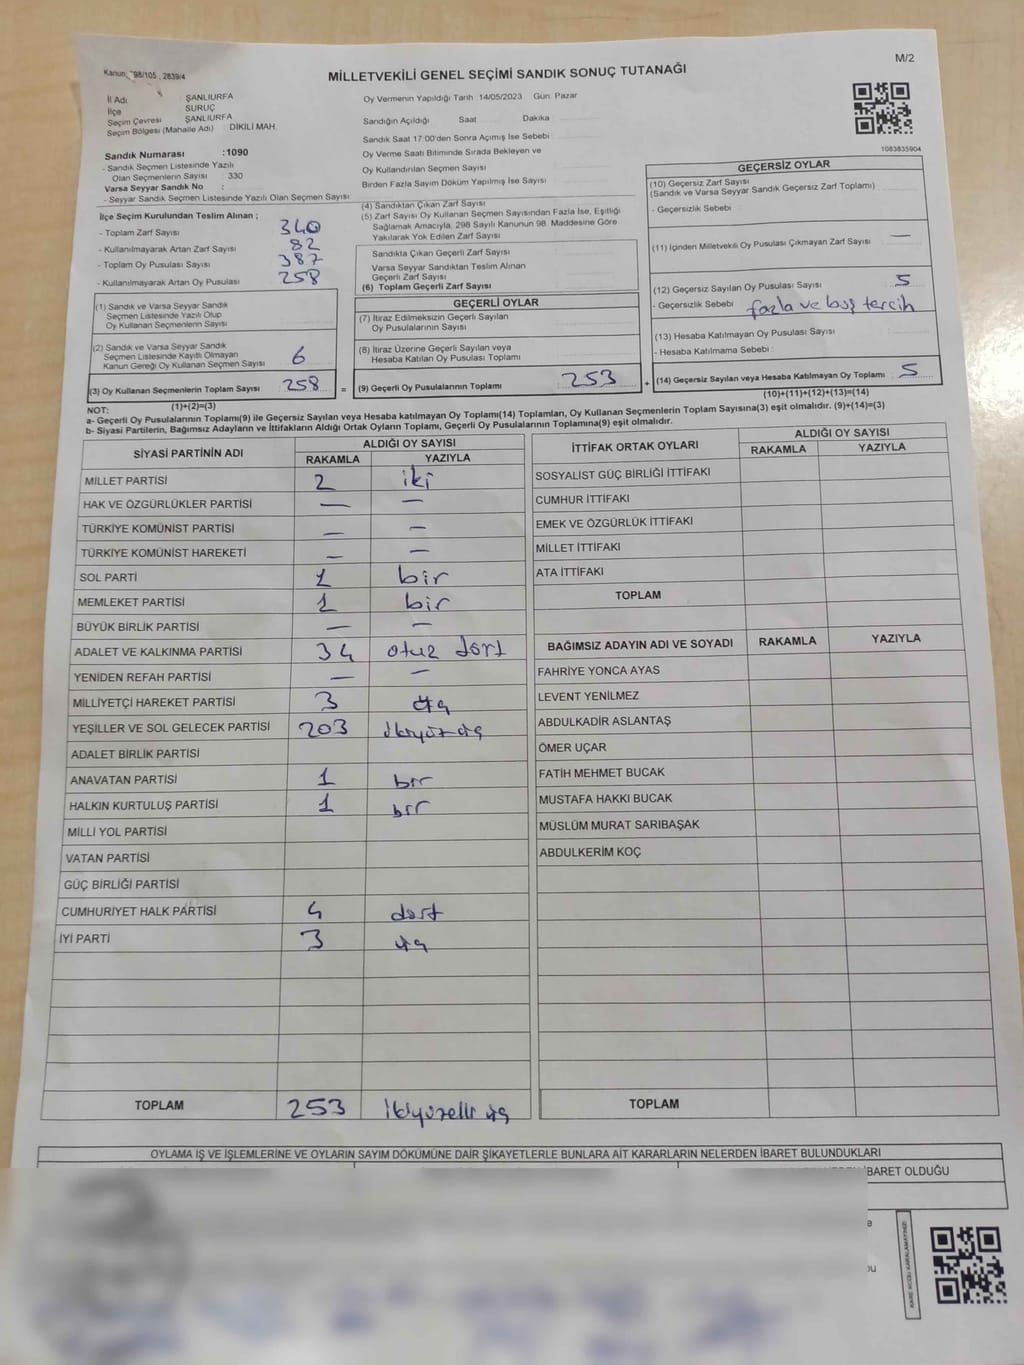 Kanun: 298/105 , 2839/4
M/2
MİLLETVEKİLİ GENEL SEÇİMİ SANDIK SONUÇ TUTANAĞI
İl Adı ŞANLIURFA
İlçe SURUÇ
Seçim Çevresi ŞANLIURFA
Seçim Bölgesi (Mahalle Adı) DİKİLİ MAH.
Sandık Numarası :1090
- Sandık Seçmen Listesinde Yazılı
Olan Seçmenlerin Sayısı : 330
Varsa Seyyar Sandık No :
- Seyyar Sandık Seçmen Listesinde Yazılı Olan Seçmen Sayısı
İlçe Seçim Kurulundan Teslim Alınan ;
- Toplam Zarf Sayısı 340
- Kullanılmayarak Artan Zarf Sayısı 82
- Toplam Oy Pusulası Sayısı 387
- Kullanılmayarak Artan Oy Pusulası 258
(1) Sandık ve Varsa Seyyar Sandık
Seçmen Listesinde Yazılı Olup
Oy Kullanan Seçmenlerin Sayısı
(2) Sandık ve Varsa Seyyar Sandık
Seçmen Listesinde Kayıtlı Olmayan
Kanun Gereği Oy Kullanan Seçmen Sayısı 6
(3) Oy Kullanan Seçmenlerin Toplam Sayısı 258 =
(1)+(2)=(3)
Oy Vermenin Yapıldığı Tarih 14/05/2023 Gün: Pazar
Sandığın Açıldığı Saat Dakika
Sandık Saat 17:00'den Sonra Açımış İse Sebebi
Oy Verme Saati Bitiminde Sırada Bekleyen ve
Oy Kullandırılan Seçmen Sayısı
Birden Fazla Sayım Döküm Yapılmış İse Sayısı
(4) Sandıktan Çıkan Zarf Sayısı
(5) Zarf Sayısı Oy Kullanan Seçmen Sayısından Fazla İse, Eşitliği
Sağlamak Amacıyla, 298 Sayılı Kanunun 98. Maddesine Göre
Yakılarak Yok Edilen Zarf Sayısı
Sandıkta Çıkan Geçerli Zarf Sayısı
Varsa Seyyar Sandıktan Teslim Alınan
Geçerli Zarf Sayısı
(6) Toplam Geçerli Zarf Sayısı
GEÇERLİ OYLAR
(7) İtiraz Edilmeksizin Geçerli Sayılan
Oy Pusulalarının Sayısı
(8) İtiraz Üzerine Geçerli Sayılan veya
Hesaba Katılan Oy Pusulası Toplamı
(9) Geçerli Oy Pusulalarının Toplamı 253 +
1083835904
GEÇERSİZ OYLAR
(10) Geçersiz Zarf Sayısı
(Sandık ve Varsa Seyyar Sandık Geçersiz Zarf Toplamı)
- Geçersizlik Sebebi
(11) İçinden Milletvekili Oy Pusulası Çıkmayan Zarf Sayısı —
(12) Geçersiz Sayılan Oy Pusulası Sayısı 5
- Geçersizlik Sebebi fazla ve boş tercih
(13) Hesaba Katılmayan Oy Pusulası Sayısı
- Hesaba Katılmama Sebebi
(14) Geçersiz Sayılan veya Hesaba Katılmayan Oy Toplamı 5
(10)+(11)+(12)+(13)=(14)
NOT:
a- Geçerli Oy Pusulalarının Toplamı(9) ile Geçersiz Sayılan veya Hesaba katılmayan Oy Toplamı(14) Toplamları, Oy Kullanan Seçmenlerin Toplam Sayısına(3) eşit olmalıdır. (9)+(14)=(3)
b- Siyasi Partilerin, Bağımsız Adayların ve İttifakların Aldığı Ortak Oyların Toplamı, Geçerli Oy Pusulalarının Toplamına(9) eşit olmalıdır.
SİYASİ PARTİNİN ADI ALDIĞI OY SAYISI
RAKAMLA YAZIYLA
MİLLET PARTİSİ 2 iki
HAK VE ÖZGÜRLÜKLER PARTİSİ — —
TÜRKİYE KOMÜNİST PARTİSİ — —
TÜRKİYE KOMÜNİST HAREKETİ — —
SOL PARTİ 1 bir
MEMLEKET PARTİSİ 1 bir
BÜYÜK BİRLİK PARTİSİ — —
ADALET VE KALKINMA PARTİSİ 34 otuz dört
YENİDEN REFAH PARTİSİ — —
MİLLİYETÇİ HAREKET PARTİSİ 3 üç
YEŞİLLER VE SOL GELECEK PARTİSİ 203 ikiyüz üç
ADALET BİRLİK PARTİSİ
ANAVATAN PARTİSİ 1 bir
HALKIN KURTULUŞ PARTİSİ 1 bir
MİLLİ YOL PARTİSİ
VATAN PARTİSİ
GÜÇ BİRLİĞİ PARTİSİ
CUMHURİYET HALK PARTİSİ 4 dört
İYİ PARTİ 3 üç
TOPLAM 253 ikiyüzelli üç
İTTİFAK ORTAK OYLARI ALDIĞI OY SAYISI
RAKAMLA YAZIYLA
SOSYALİST GÜÇ BİRLİĞİ İTTİFAKI
CUMHUR İTTİFAKI
EMEK VE ÖZGÜRLÜK İTTİFAKI
MİLLET İTTİFAKI
ATA İTTİFAKI
TOPLAM
BAĞIMSIZ ADAYIN ADI VE SOYADI RAKAMLA YAZIYLA
FAHRİYE YONCA AYAS
LEVENT YENİLMEZ
ABDULKADİR ASLANTAŞ
ÖMER UÇAR
FATİH MEHMET BUCAK
MUSTAFA HAKKI BUCAK
MÜSLÜM MURAT SARIBAŞAK
ABDULKERİM KOÇ
TOPLAM
OYLAMA İŞ VE İŞLEMLERİNE VE OYLARIN SAYIM DÖKÜMÜNE DAİR ŞİKAYETLERLE BUNLARA AİT KARARLARIN NELERDEN İBARET BULUNDUKLARI
İBARET OLDUĞU
KARE KODU KARALAMAYINIZ!